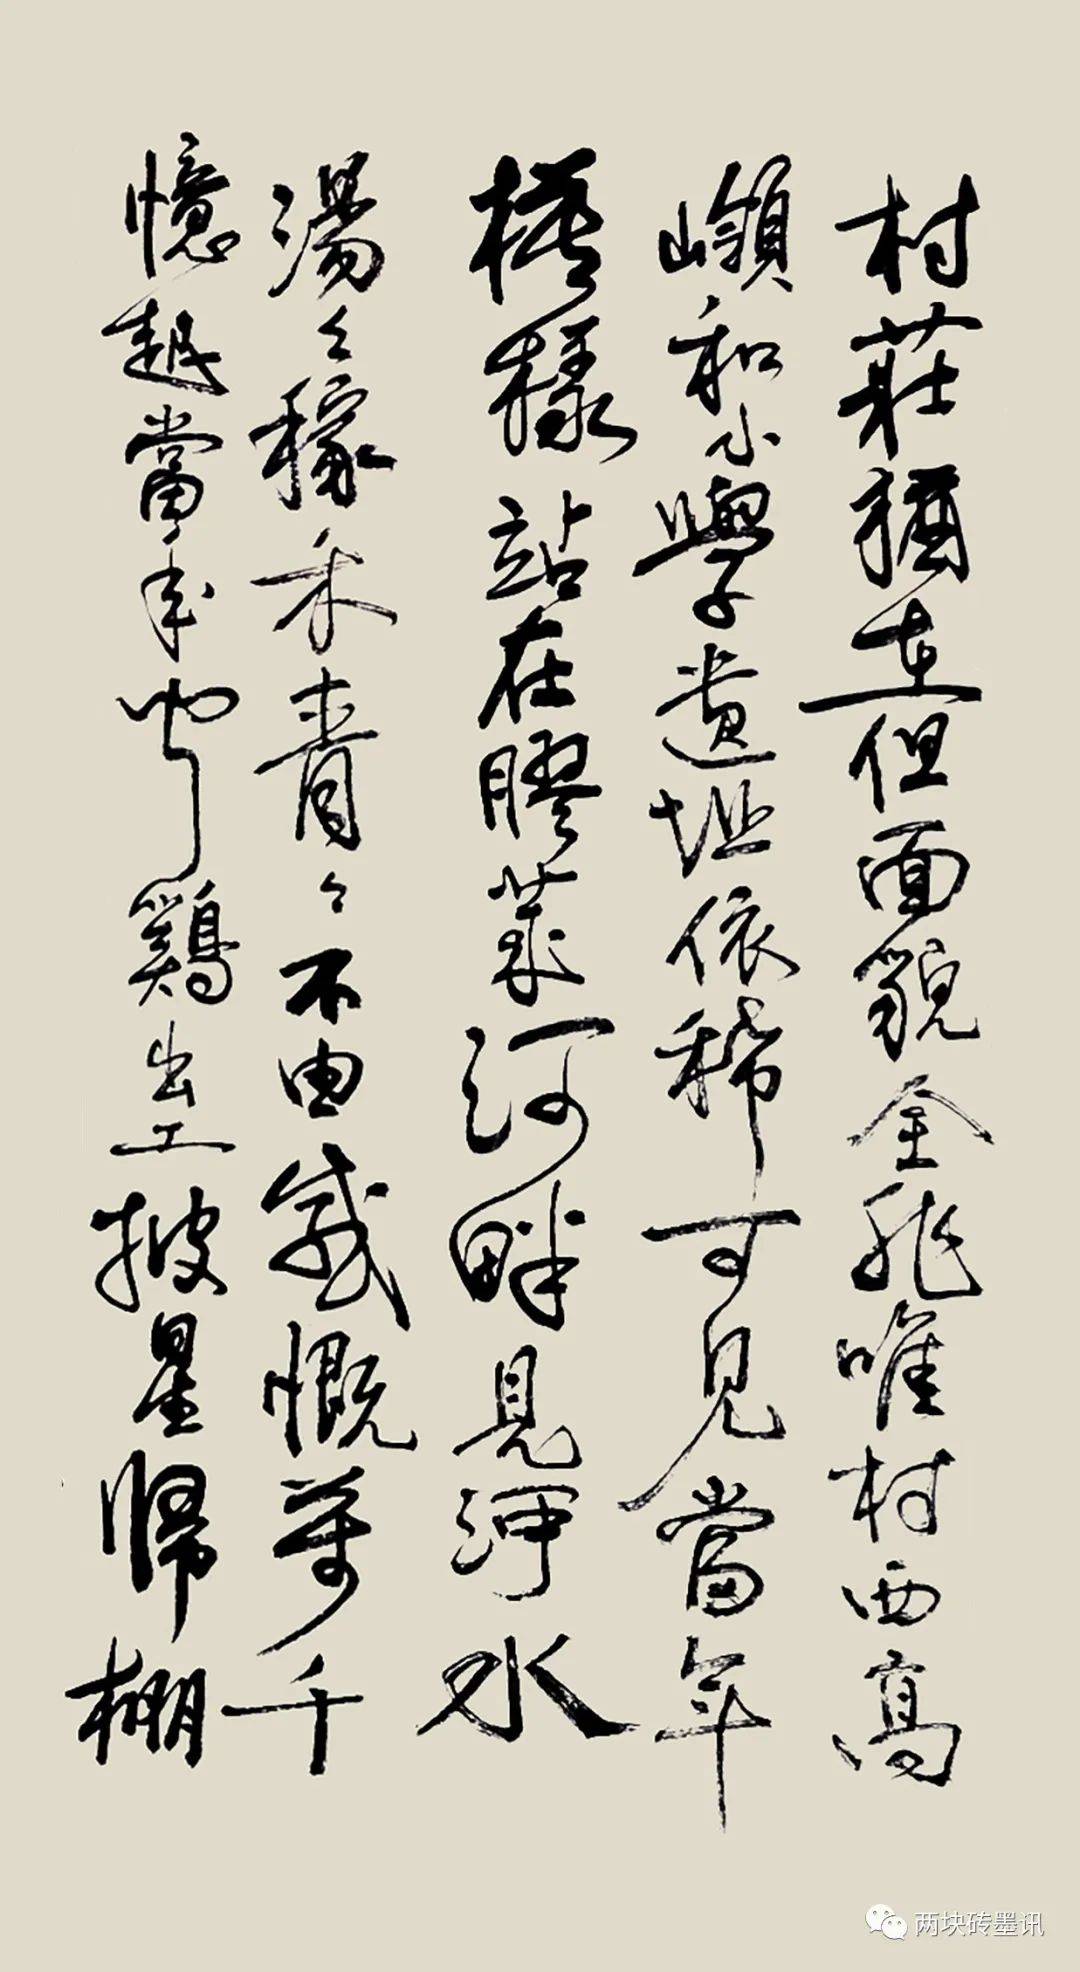 村莊猶在但面貌全非唯村西高
嶺和小學遺址依稀可見當年
模樣站在膠萊河畔見河水
湯々稼禾青々不由感慨萬千
憶起當年聞鷄出工披星歸棚
两块砖墨讯